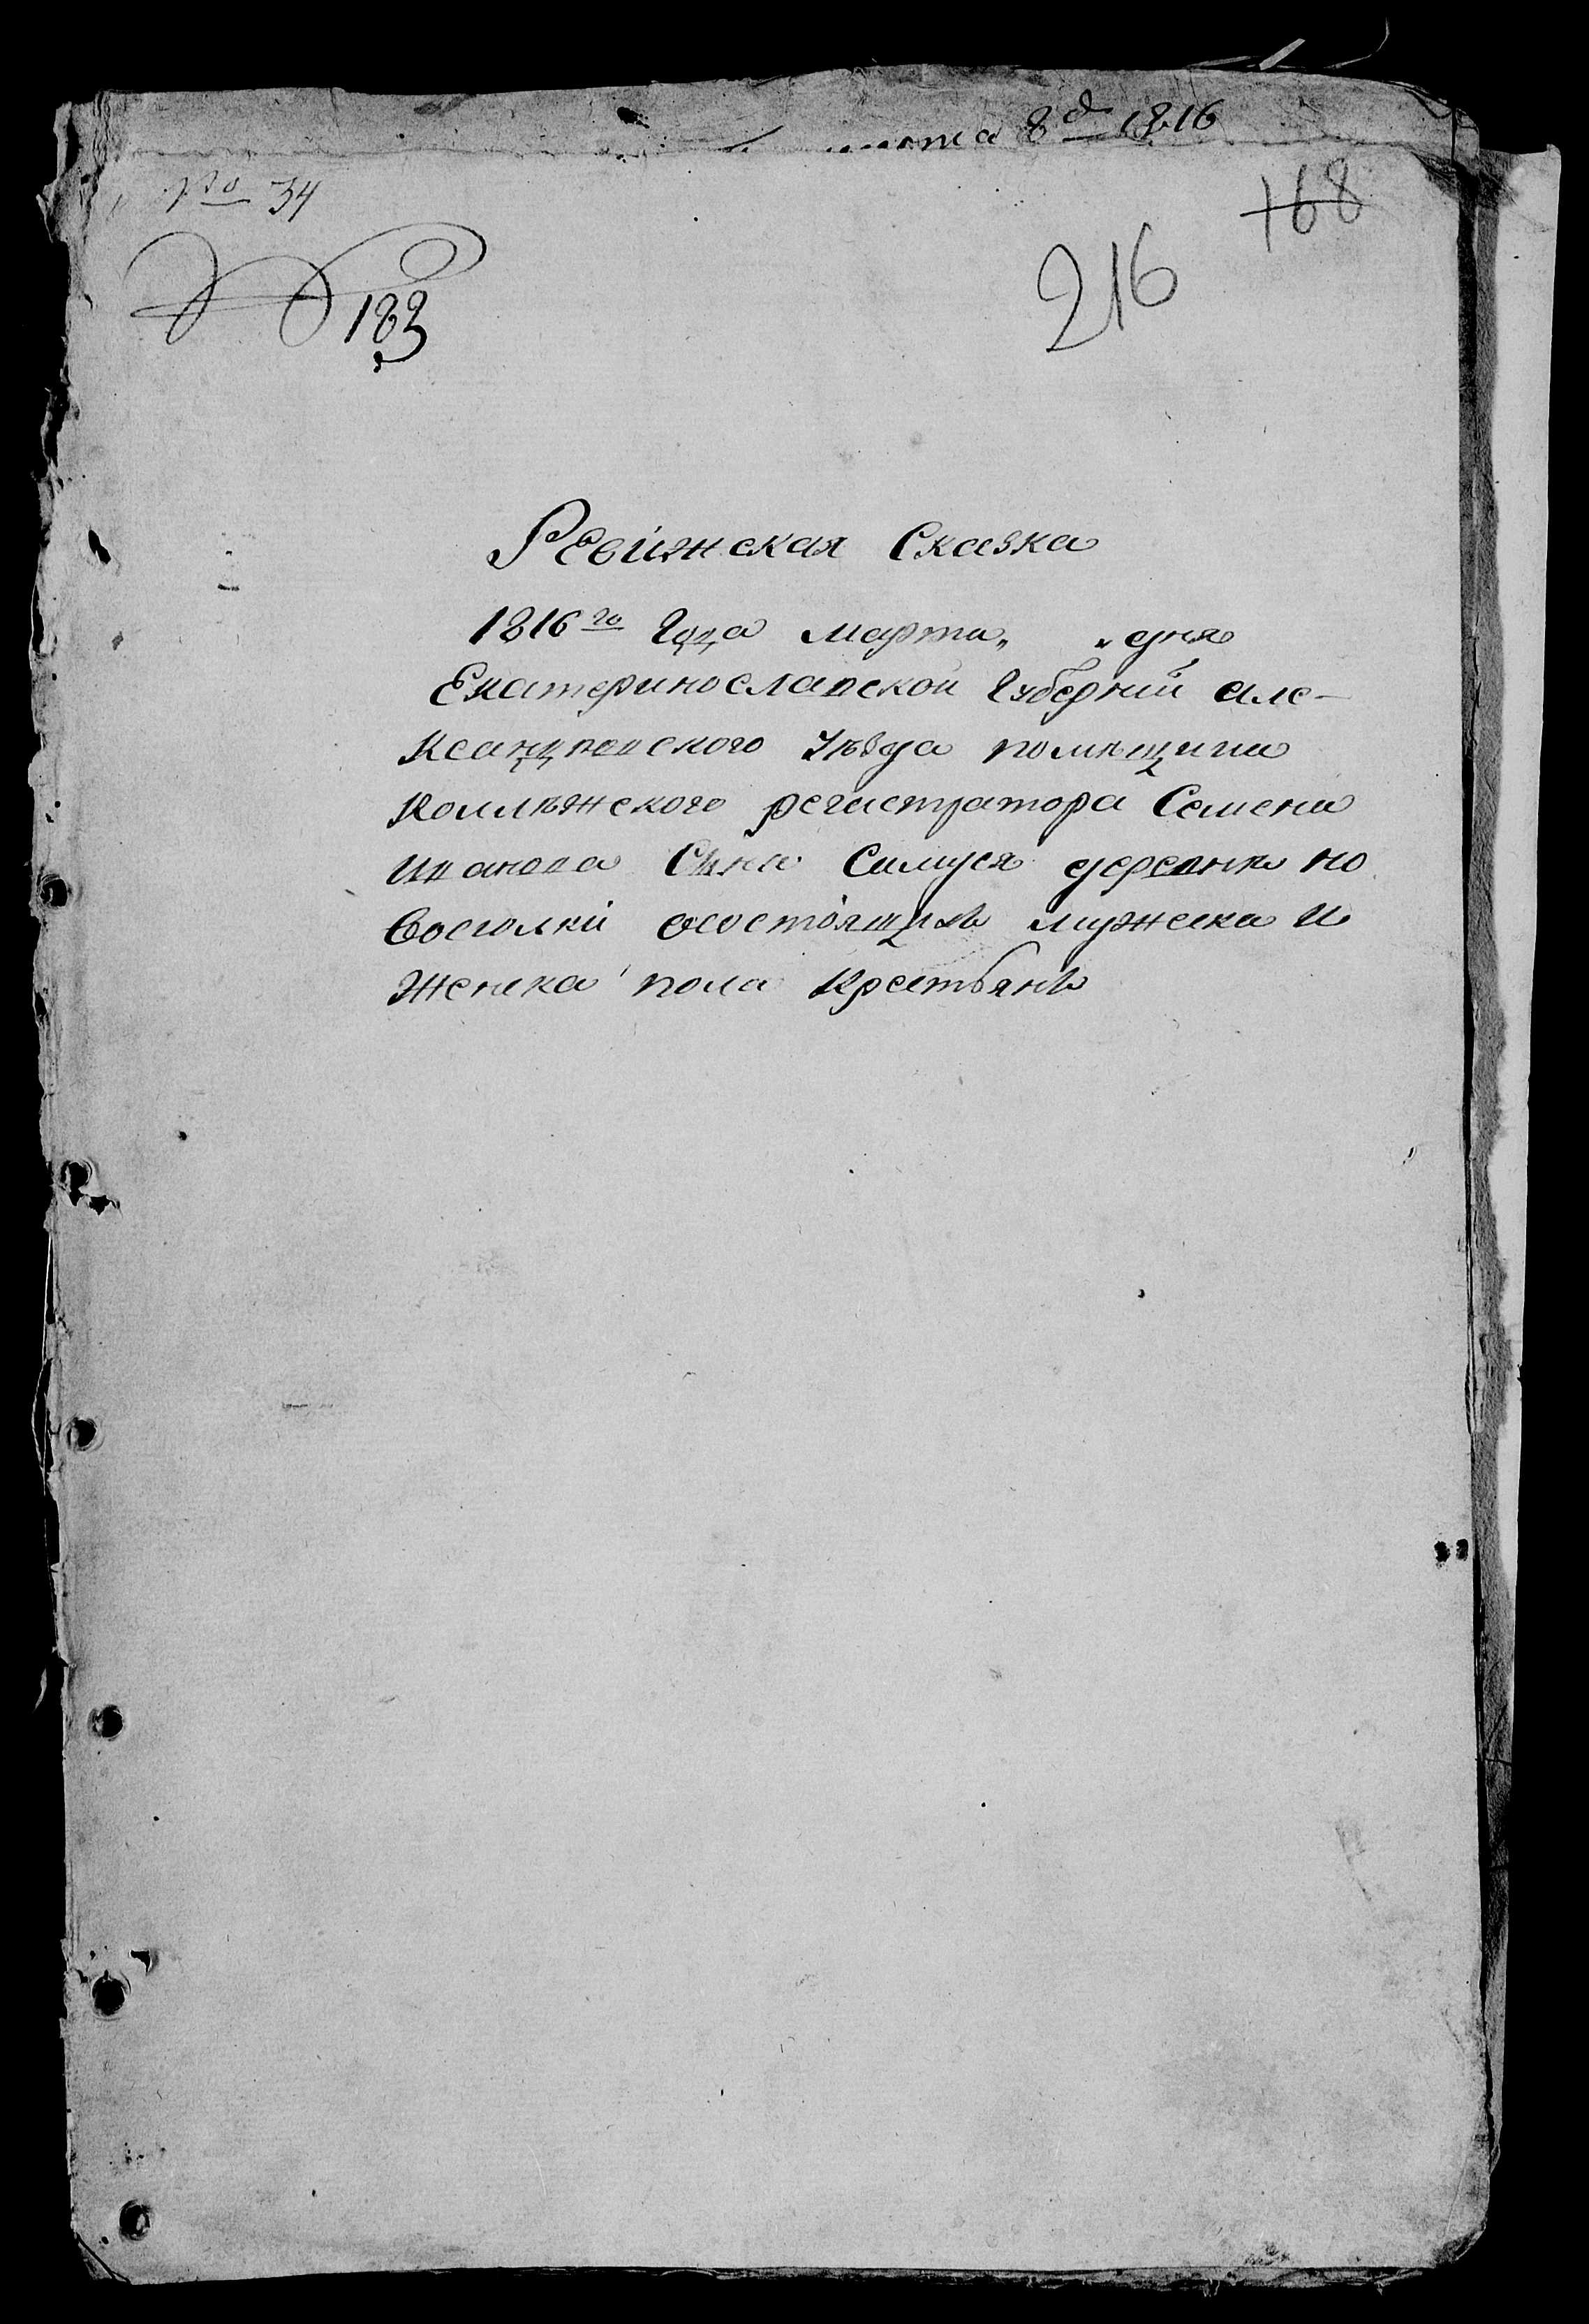 марта 8д 1816
№ 34
168
216
183
Ревижская Сказка
1816го Года марта „ „ дня
Екатеринославской Губернии але-
ксандровского Уѣзда помѣщика
Коллѣжского регистратора Семена
Иванова Сына Самуся деревни но
восiолки осостоящихъ мужеска и
женска пола крестьянъ